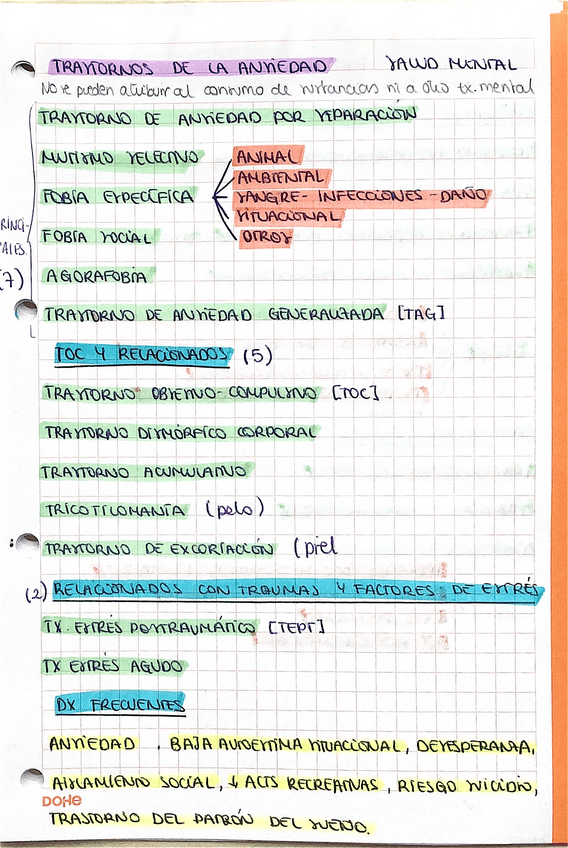 TRASTORNOS DE LA ANSIEDAD SALUD MENTAL
No se pueden atribuir al consumo de sustancias ni a otro tx. mental
TRASTORNO DE ANSIEDAD POR SEPARACIÓN
MUTISMO SELECTIVO
ANIMAL
AMBIENTAL
FOBIA ESPECÍFICA SANGRE - INFECCIONES - DAÑO
SITUACIONAL
FOBIA SOCIAL OTROS
RINCI-
PALES.
(7) AGORAFOBIA
TRASTORNO DE ANSIEDAD GENERALIZADA [TAG]
TOC Y RELACIONADOS (5)
TRASTORNO OBSESIVO-COMPULSIVO [TOC]
TRASTORNO DISMÓRFICO CORPORAL
TRASTORNO ACUMULATIVO
TRICOTILOMANÍA (pelo)
TRASTORNO DE EXCORIACIÓN (piel
(2) RELACIONADOS CON TRAUMAS Y FACTORES DE ESTRÉS
TX. ESTRÉS POSTRAUMÁTICO [TEPT]
TX ESTRÉS AGUDO
DX FRECUENTES
ANSIEDAD , BAJA AUTOESTIMA SITUACIONAL, DESESPERANZA,
AISLAMIENTO SOCIAL, ↓ ACTS RECREATIVAS, RIESGO SUICIDIO,
DOHE
TRASTORNO DEL PATRÓN DEL SUEÑO.